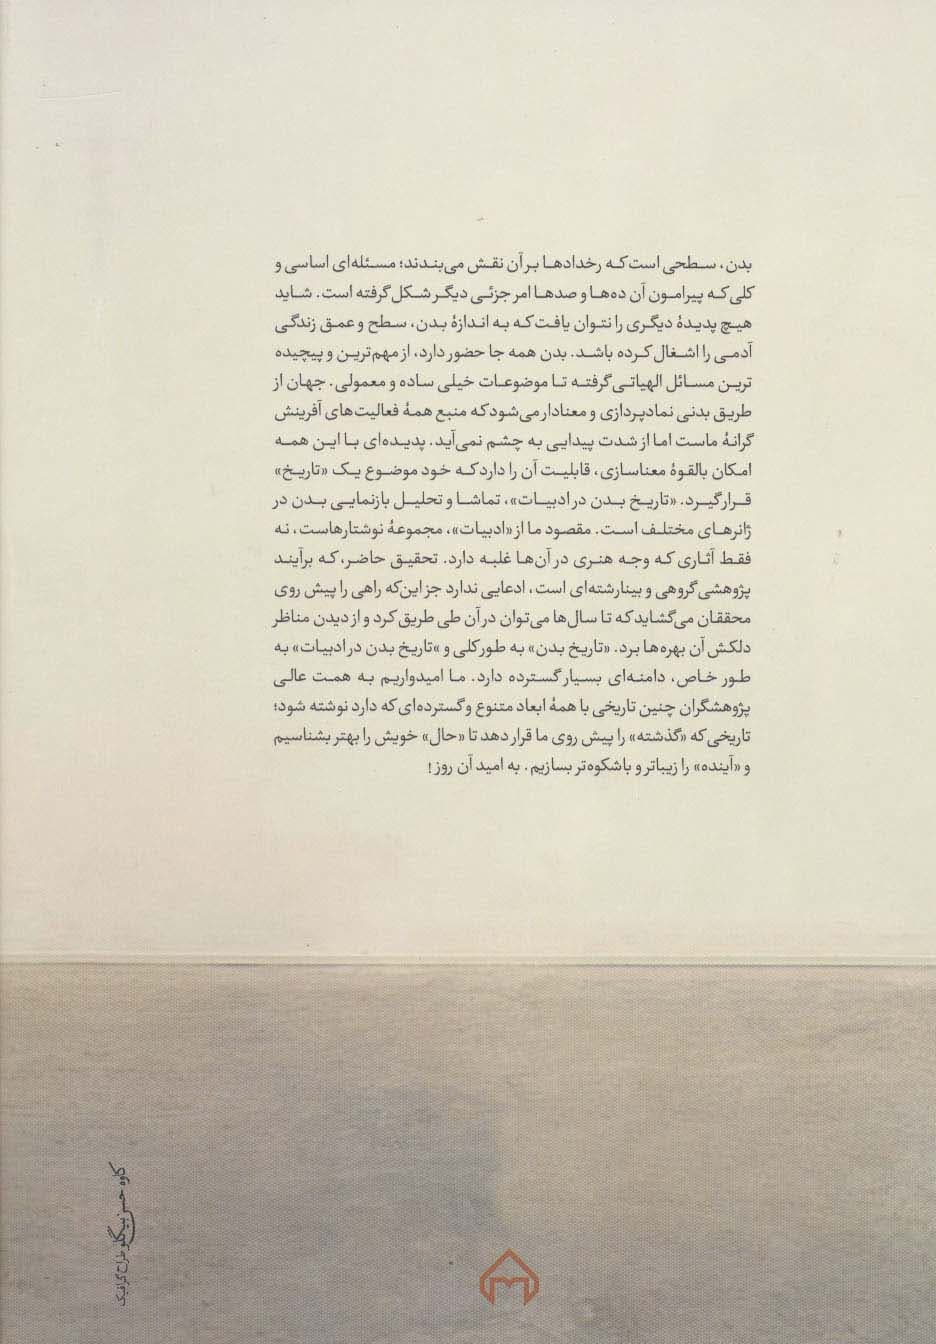 بدن، سطحی است که رخدادها بر آن نقش می‌بندند؛ مسئله‌ای اساسی و
کلی که پیرامون آن ده‌ها و صدها امر جزئی دیگر شکل گرفته است. شاید
هیچ پدیدۀ دیگری را نتوان یافت که به اندازۀ بدن، سطح و عمق زندگی
آدمی را اشغال کرده باشد. بدن همه جا حضور دارد، از مهم‌ترین و پیچیده
ترین مسائل الهیاتی گرفته تا موضوعات خیلی ساده و معمولی. جهان از
طریق بدنی نمادپردازی و معنادار می‌شود که منبع همۀ فعالیت‌های آفرینش
گرانۀ ماست اما از شدت پیدایی به چشم نمی‌آید. پدیده‌ای با این همه
امکان بالقوۀ معناسازی، قابلیت آن را دارد که خود موضوع یک «تاریخ»
قرار گیرد. «تاریخ بدن در ادبیات»، تماشا و تحلیل بازنمایی بدن در
ژانرهای مختلف است. مقصود ما از «ادبیات»، مجموعۀ نوشتارهاست، نه
فقط آثاری که وجه هنری در آن‌ها غلبه دارد. تحقیق حاضر، که برآیند
پژوهشی گروهی و بینارشته‌ای است، ادعایی ندارد جز این‌که راهی را پیش روی
محققان می‌گشاید که تا سال‌ها می‌توان در آن طی طریق کرد و از دیدن مناظر
دلکش آن بهره‌ها برد. «تاریخ بدن» به طور کلی و »تاریخ بدن در ادبیات» به
طور خاص، دامنه‌ای بسیار گسترده دارد. ما امیدواریم به همت عالی
پژوهشگران چنین تاریخی با همۀ ابعاد متنوع و گسترده‌ای که دارد نوشته شود؛
تاریخی که «گذشته» را پیش روی ما قرار دهد تا «حال» خویش را بهتر بشناسیم
و «آینده» را زیباتر و باشکوه‌تر بسازیم. به امید آن روز!
کاوه حسن بیگلو طراح گرافیک